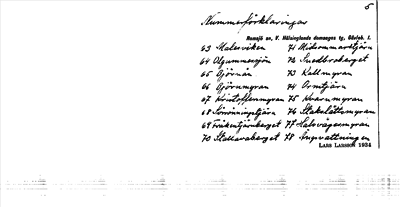 5
Nummerförklaringar
Ramsjö sn, V. Hälsinglands domsagas tg, Gävleb. l.
63 Malesviken 71 Midsommartjärn
64 Olgummessjön 72 Snedbroberget
65 Gjörnån 73 Kallmyran
66 Gjörnmyran 74 Ormtjärn
67 Kristoffermyran 75 Kvarnmyran
68 Sönningstjärn 76 Stakslåttsmyran
69 Fräkentjärnberget 77 Halvvägsmyran
70 Stallarberget 78 Ängsvattningen
LARS LARSSON 1934